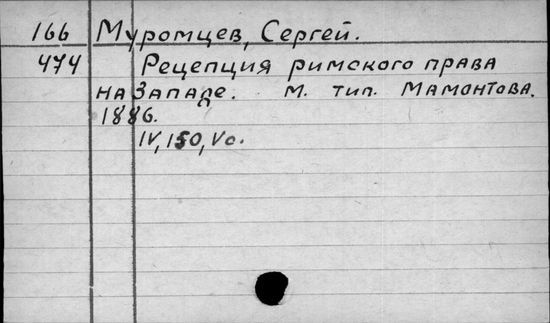 166 Муромцев, Сергей.
474 Рецепция римского права
на Западе. М. тип. Мамонтова.
1886.
IV, 150, V с.